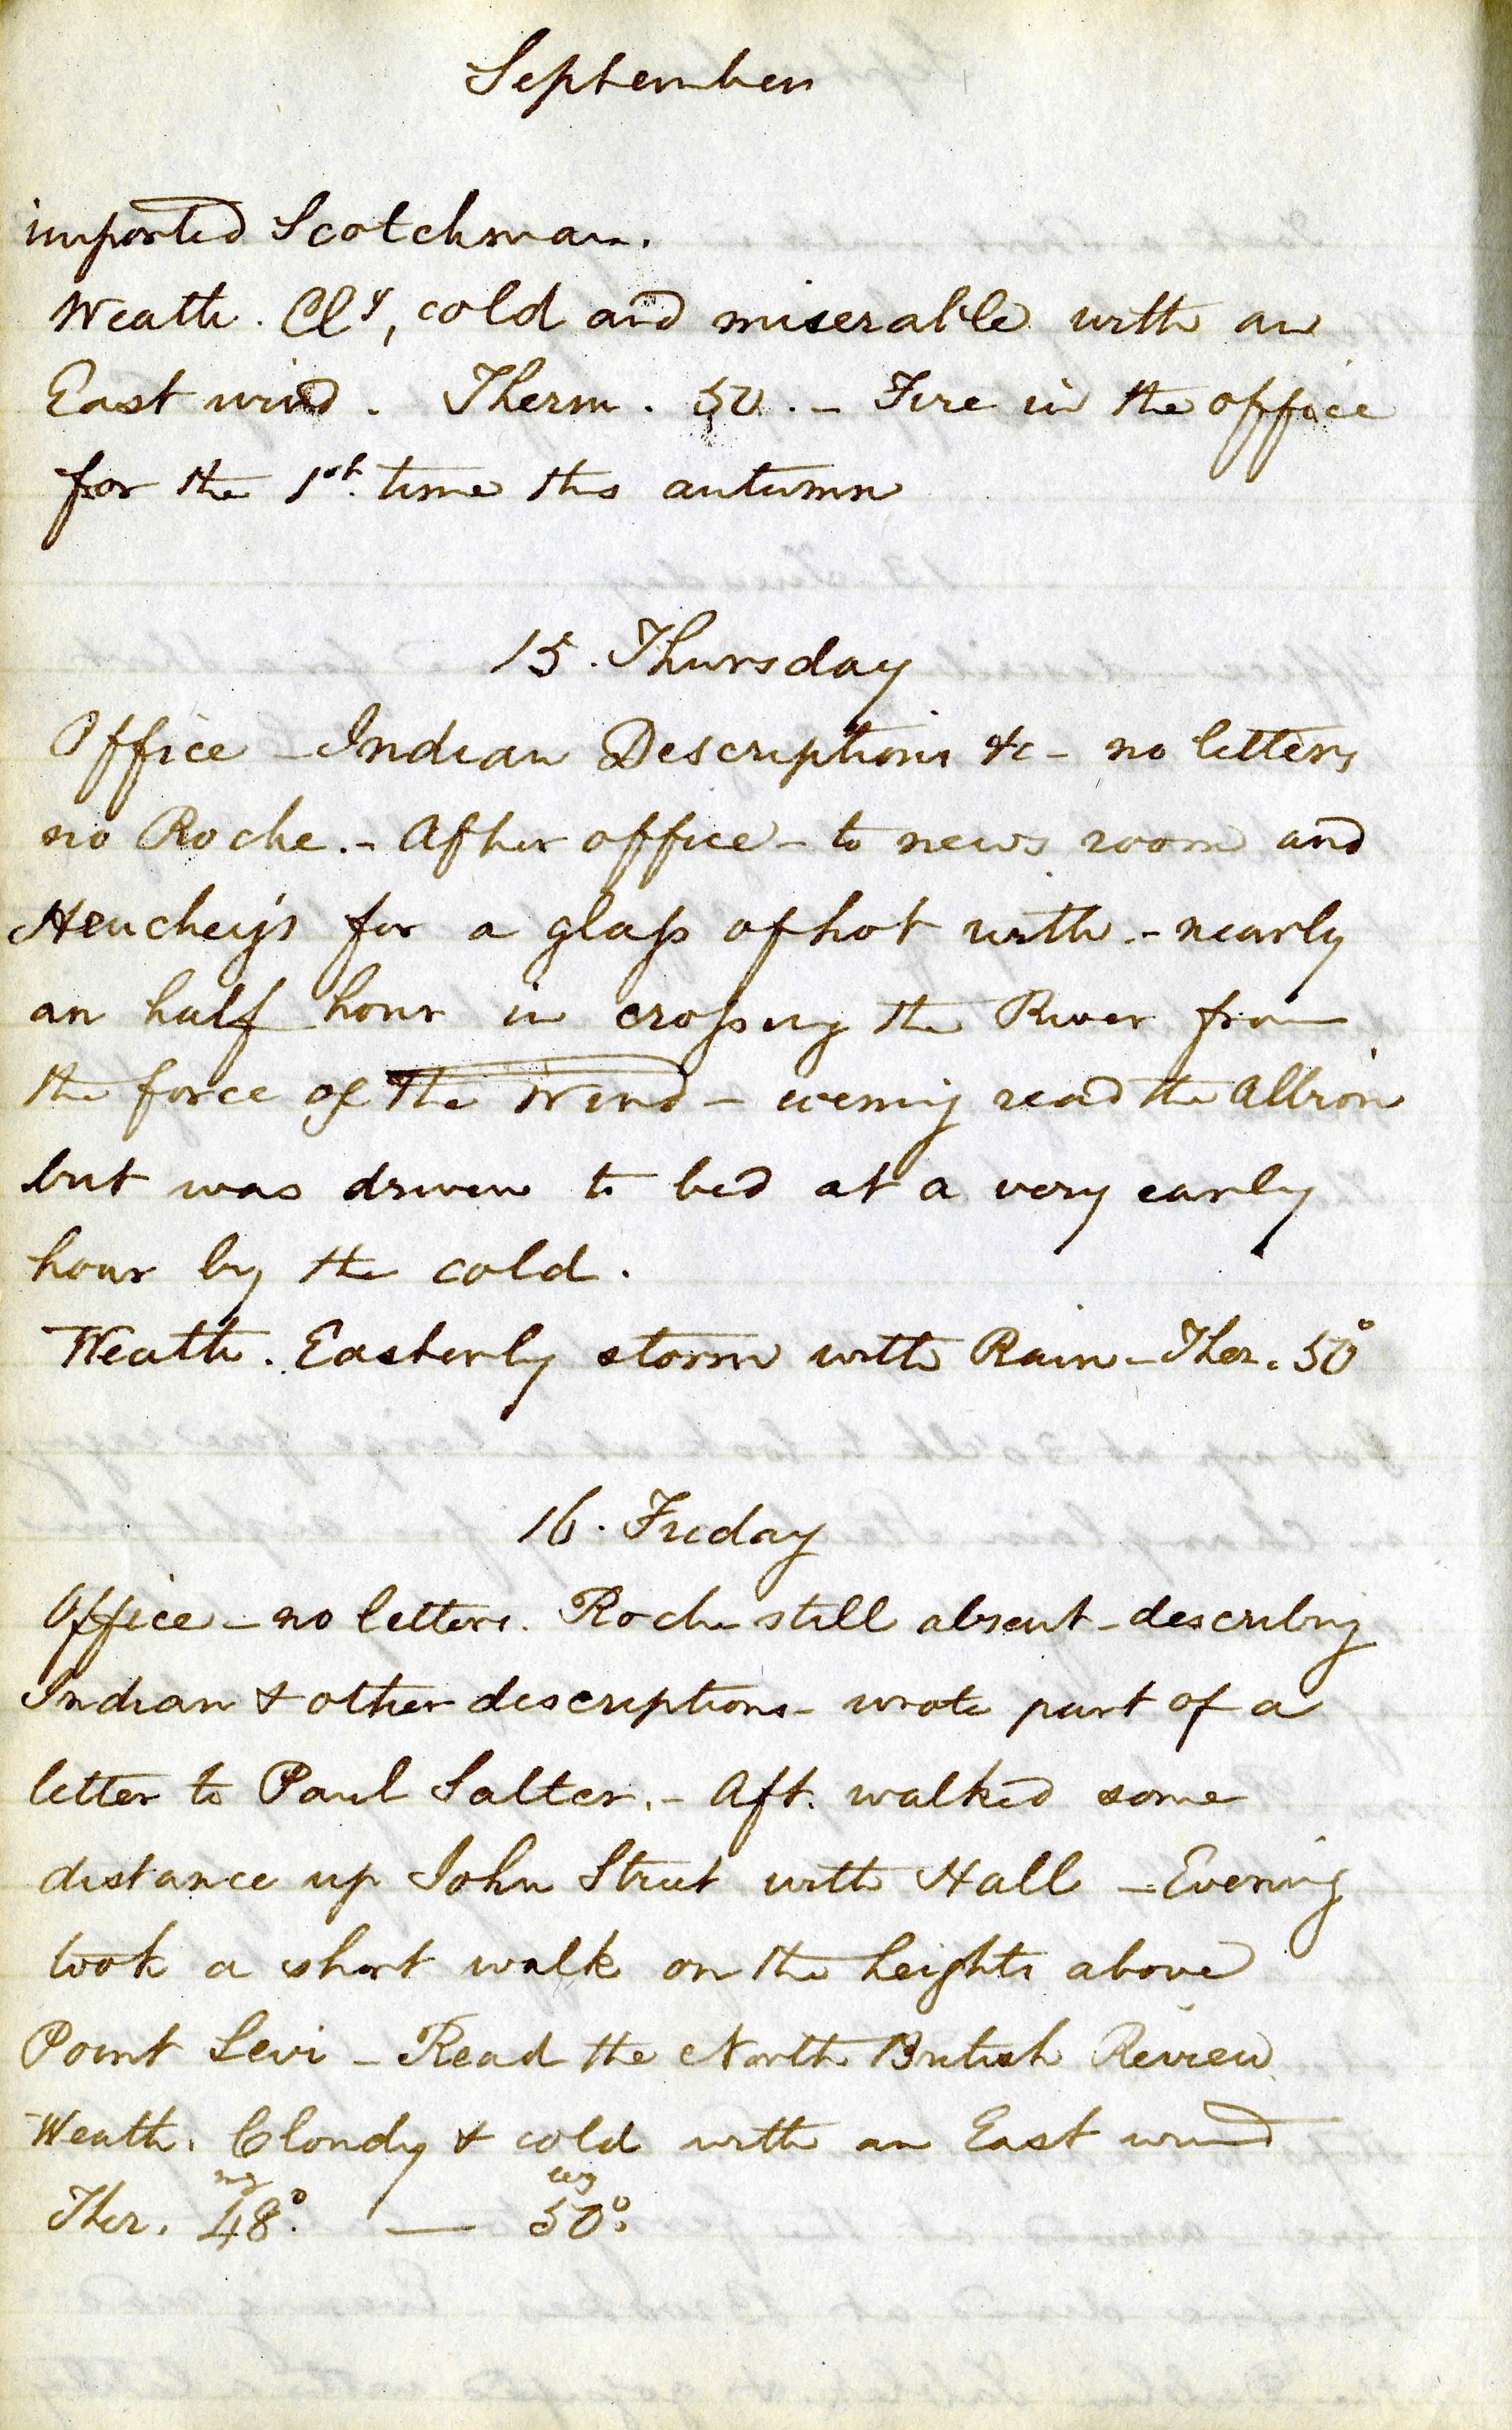 September
imported Scotchman.
Weath. Cly, cold and miserable with an
East wind. Therm. 50. - Fire in the office
for the 1st. time this autumn
15. Thursday
Office - Indian Descriptions &c - no letters,
no Roche. - After office - to news room and
Henchey's for a glass of hot with. - nearly
an half hour in crossing the River from
the force of the Wind - evening read the Albion
but was driven to bed at a very early
hour by the cold.
Weath. Easterly storm with Rain - Ther. 50°
16. Friday
Office - no letters. Roche still absent - describing
Indian & other descriptions - wrote part of a
letter to Paul Salter. - Aft. walked some
distance up John Street with Hall - Evening
took a short walk on the heights above
Point Levi - Read the North British Review
Weath. Cloudy & cold with an East wind
mg evg
Ther. 48°. — 50°.